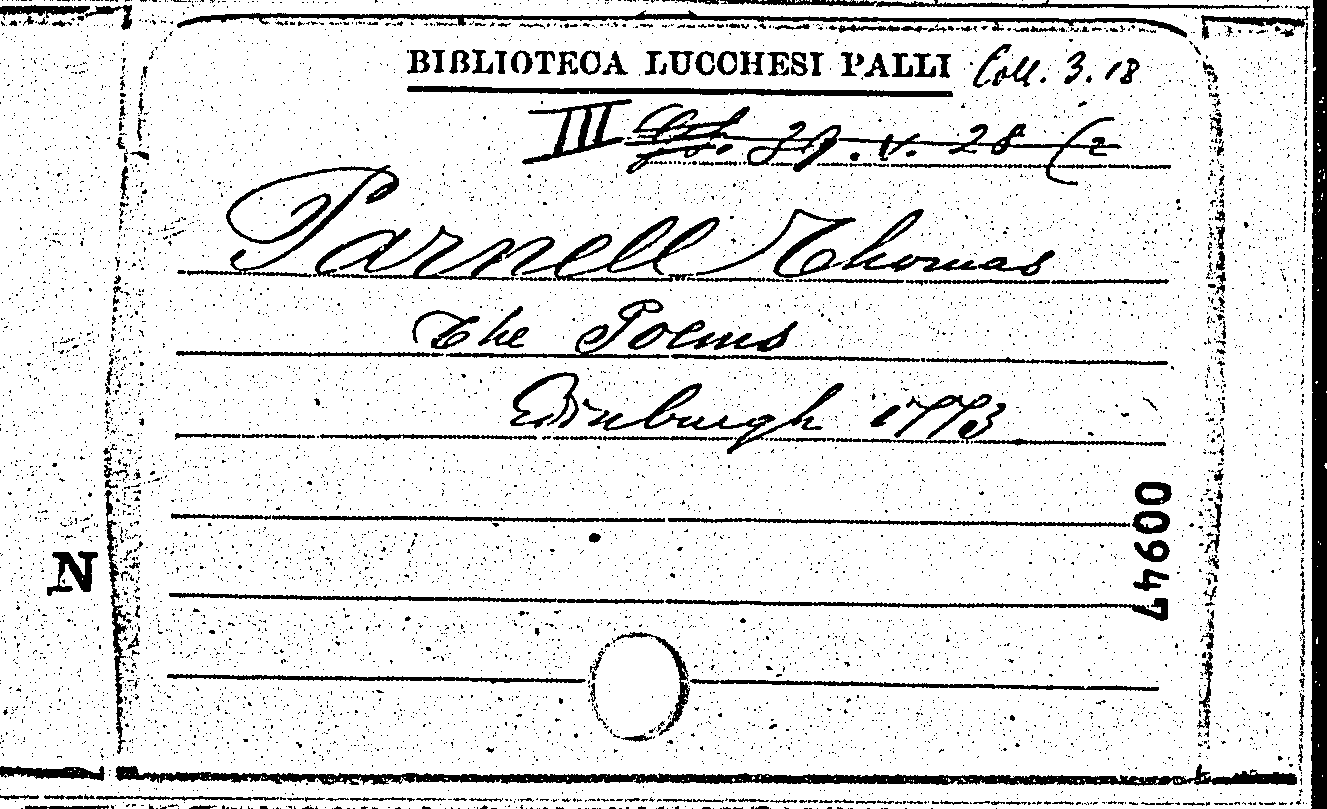 BIBLIOTECA LUCCHESI PALLI Coll. 3.18
III 28 (2
Parnell Thomas
The Poems
Edinburgh 1773
00947
N